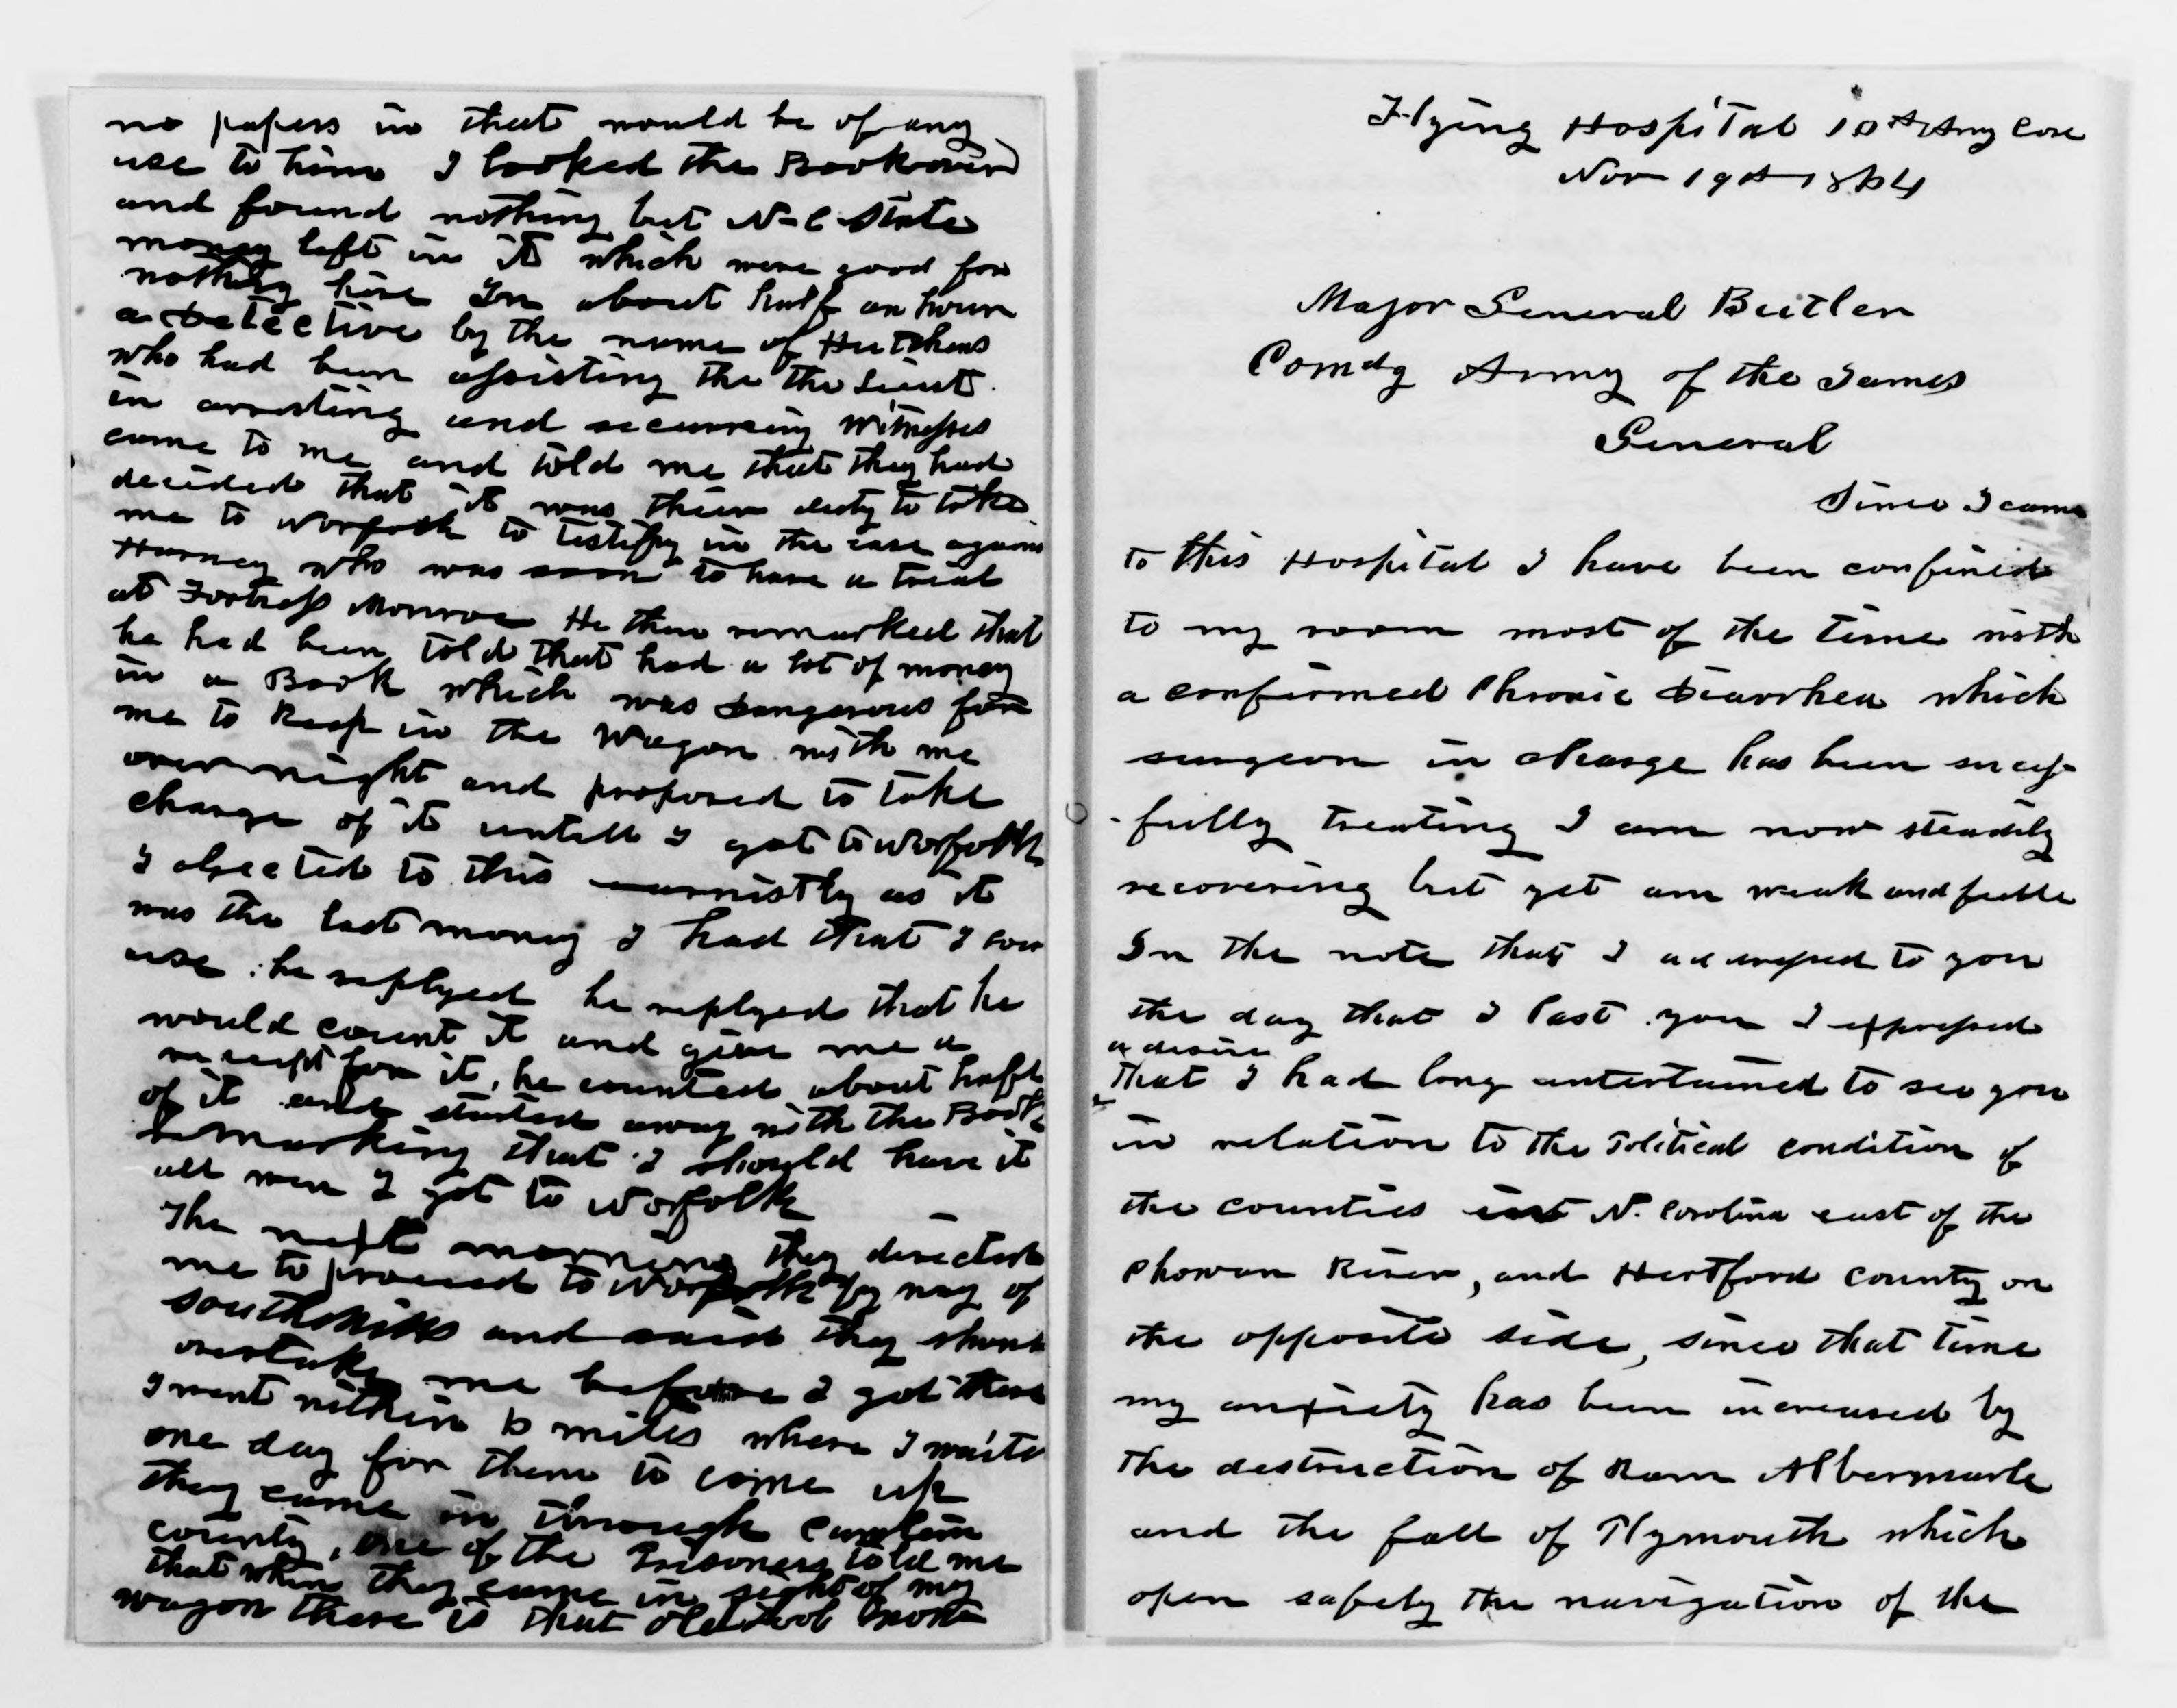 no papers in that would be of any
use to him I looked the Book over
and found nothing but N-C State
money left in it which were good for
nothing here In about half an hour
a Detective by the name of Hutchens
who had been assisting the the Lieut.
in arresting and securring witnesses
came to me and told me that they had
decided that it was their duty to take
me to Norfolk to testify in the case against
Harney who was soon to have a trial
at Fortress Monroe He then remarked that
he had been told that had a lot of money
in a Book which was dangerous for
me to Keep in the Wagon with me
over night and proposed to take
charge of it untill I got to Norfolk
I obected to this earnistly as it
was the last money I had that I cou
use. he replyed he replyed that he
would count it and give me a
receipt for it, he counted about half
of it and started away with the Book
remarking that I should have it
all wen I got to Norfolk
The next morning they directed
me to proceed to Norfolk by way of
SouthMills and said they shoul
overtake me before I got there
I went within 10 miles where I waite
one day for them to come up
they came in through Camden
county, one of the Prisoners told me
that when they came in sight of my
wagon there is that old fool
Flying Hospital 10th Army Core
Nov 19th 1864
Major General Butler
Comdg Army of the James
General
Since I came
to this Hospital I have been confined
to my room most of the time with
a confirmed Chronic Diarrhea which
surgeon in charge has been sucess-
-fully treating I am now steadily
recovering but yet am weak and feeble
In the note that I addressed to you
the day that I last you I expressed
a desire
that I had long entertained to see you
in relation to the Political condition of
the counties in N. Carolina east of the
Chowan River, and Hertford county on
the opposite side, since that time
my anxiety has been increased by
the destruction of Ram Albermarle
and the fall of Plymouth which
open safely the navigation of the